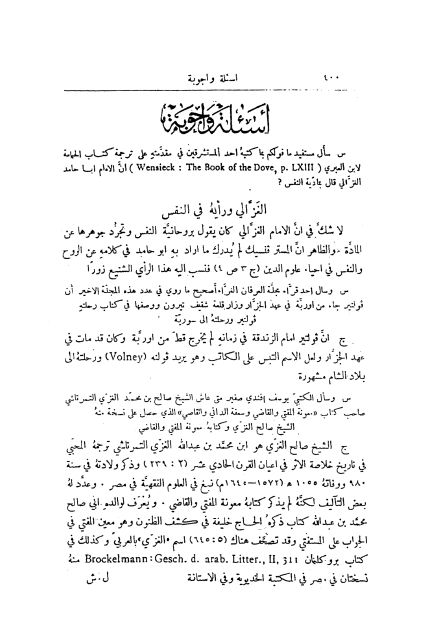 ٤٠٠ اسئلة واجوبة
أسئلة واجوبة
س سأل مستفيد ما قولكم بما كتبهُ احد المستشرقين في مقدمتهِ على ترجمة كتاب الحمامة
لابن العبري ( Wensieck : The Book of the Dove, p. LXIII ) انَّ الامام ابا حامد
الغزَّالي قال بمادّية النفس ؟
الغزَّالي ورأيهُ في النفس
لا شكَّ في انَّ الامام الغزَّالي كان يقول بروحانيَّة النفس وتجرُّد جوهرها عن
المادَّة – والظاهر انَّ المستر ڤنسيك لم يُدرك ما اراد بهِ ابو حامد في كلامهِ عن الروح
والنفس في احياء علوم الدين (ج ٣ ص ٤) فنسب اليه هذا الرأي الشنيع زورًا
س وسأل احد قرَّاء مجلَّة العرفان الغرَّاء: أصحيح ما روي في عدد هذه المجلة الاخير أن
ڤولتير جاء من اوربَّة في عهد الجزَّار وزار قلعة شقيف تيرون ووصفها في كتاب رحلتهِ
ڤولتير ورحلتهُ الى سوريَّة
ج انَّ ڤولتير امام الزندقة في زمانهِ لم يخرج قط من اوربَّة وكان قد مات في
عهد الجزَّار ولعل الاسم التبس على الكاتب وهو يريد ڤولنه (Volney) ورحلتهُ الى
بلاد الشام مشهورة
س وسأل الكتبي يوسف افندي صفير متى عاش الشيخ صالح بن محمد الغزي التمرتاشي
صاحب كتاب «معونة المفتي والقاضي وسعفة الداني والقاصي» الذي حصل على نسخة منهُ
الشيخ صالح الغزي وكتابهُ معونة المفتي والقاضي
ج الشيخ صالح الغزي هو ابن محمد بن عبدالله الغزي التمرتاشي ترجمهُ المحبّي
في تاريخ خلاصة الاثر في اعيان القرن الحادي عشر (٢ : ٢٣٩) وذكر ولادتهُ في سنة
٩٨٠ ووفاتهُ ١٠٥٥ هـ (١٥٧٢–١٦٤٥م) نبغ في العلوم الفقهيَّة في مصر . وعدَّد لهُ
بعض التآليف لكنَّهُ لم يذكر كتابهُ معونة المفتي والقاضي . ويُعرف لوالدهِ ابي صالح
محمد بن عبدالله كتاب ذكرهُ الحاج خليفة في كشف الظنون وهو معين المفتي في
الجواب على المستفتي وقد تصحَّف هناك (٥:٦٤٥) اسم «الغزي» بالعربي وكذلك في
كتاب بروكلمان Brockelmann : Gesch. d. arab. Litter., II, 311 منهُ
نسختان في مصر في المكتبة الخديوية وفي الاستانة ل.ش